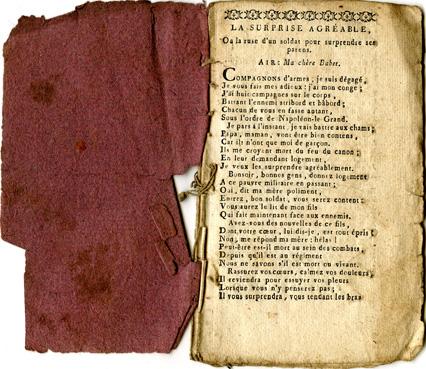 LA SURPRISE AGRÉABLE,
Ou la ruse d'un soldat pour surprendre ses
parens.
AIR: Ma chère Babet.
COMPAGNONS d'armes, je suis dégagé,
Je vous fais mes adieux: j'ai mon congé;
J'ai huit campagnes sur le corps,
Battant l'ennemi stribord et bâbord;
Chacun de vous en fasse autant,
Sous l'ordre de Napoléon-le-Grand.
Je pars à l'instant, je vais battre aux champs;
Papa, maman, vont être bien contens,
Car ils n'ont que moi de garçon.
Ils me croyent mort du feu du canon;
En leur demandant logement,
Je veux les surprendre agréablement.
Bonsoir, bonnes gens, donnez logement
A ce pauvre militaire en passant;
Oui, dit ma mère poliment,
Entrez, bon soldat, vous serez content:
Vous aurez le lit de mon fils
Qui fait maintenant face aux ennemis.
Avez-vous des nouvelles de ce fils,
Dont votre cœur, lui dis-je, est tout épris?
Non, me répond ma mère: hélas!
Peut-être est-il mort au sein des combats,
Depuis qu'il est au régiment
Nous ne savons s'il est mort ou vivant.
Rassurez vos cœurs, calmez vos douleurs,
Il reviendra pour essuyer vos pleurs
Lorsque vous n'y penserez pas;
Il vous surprendra, vous tendant les bras